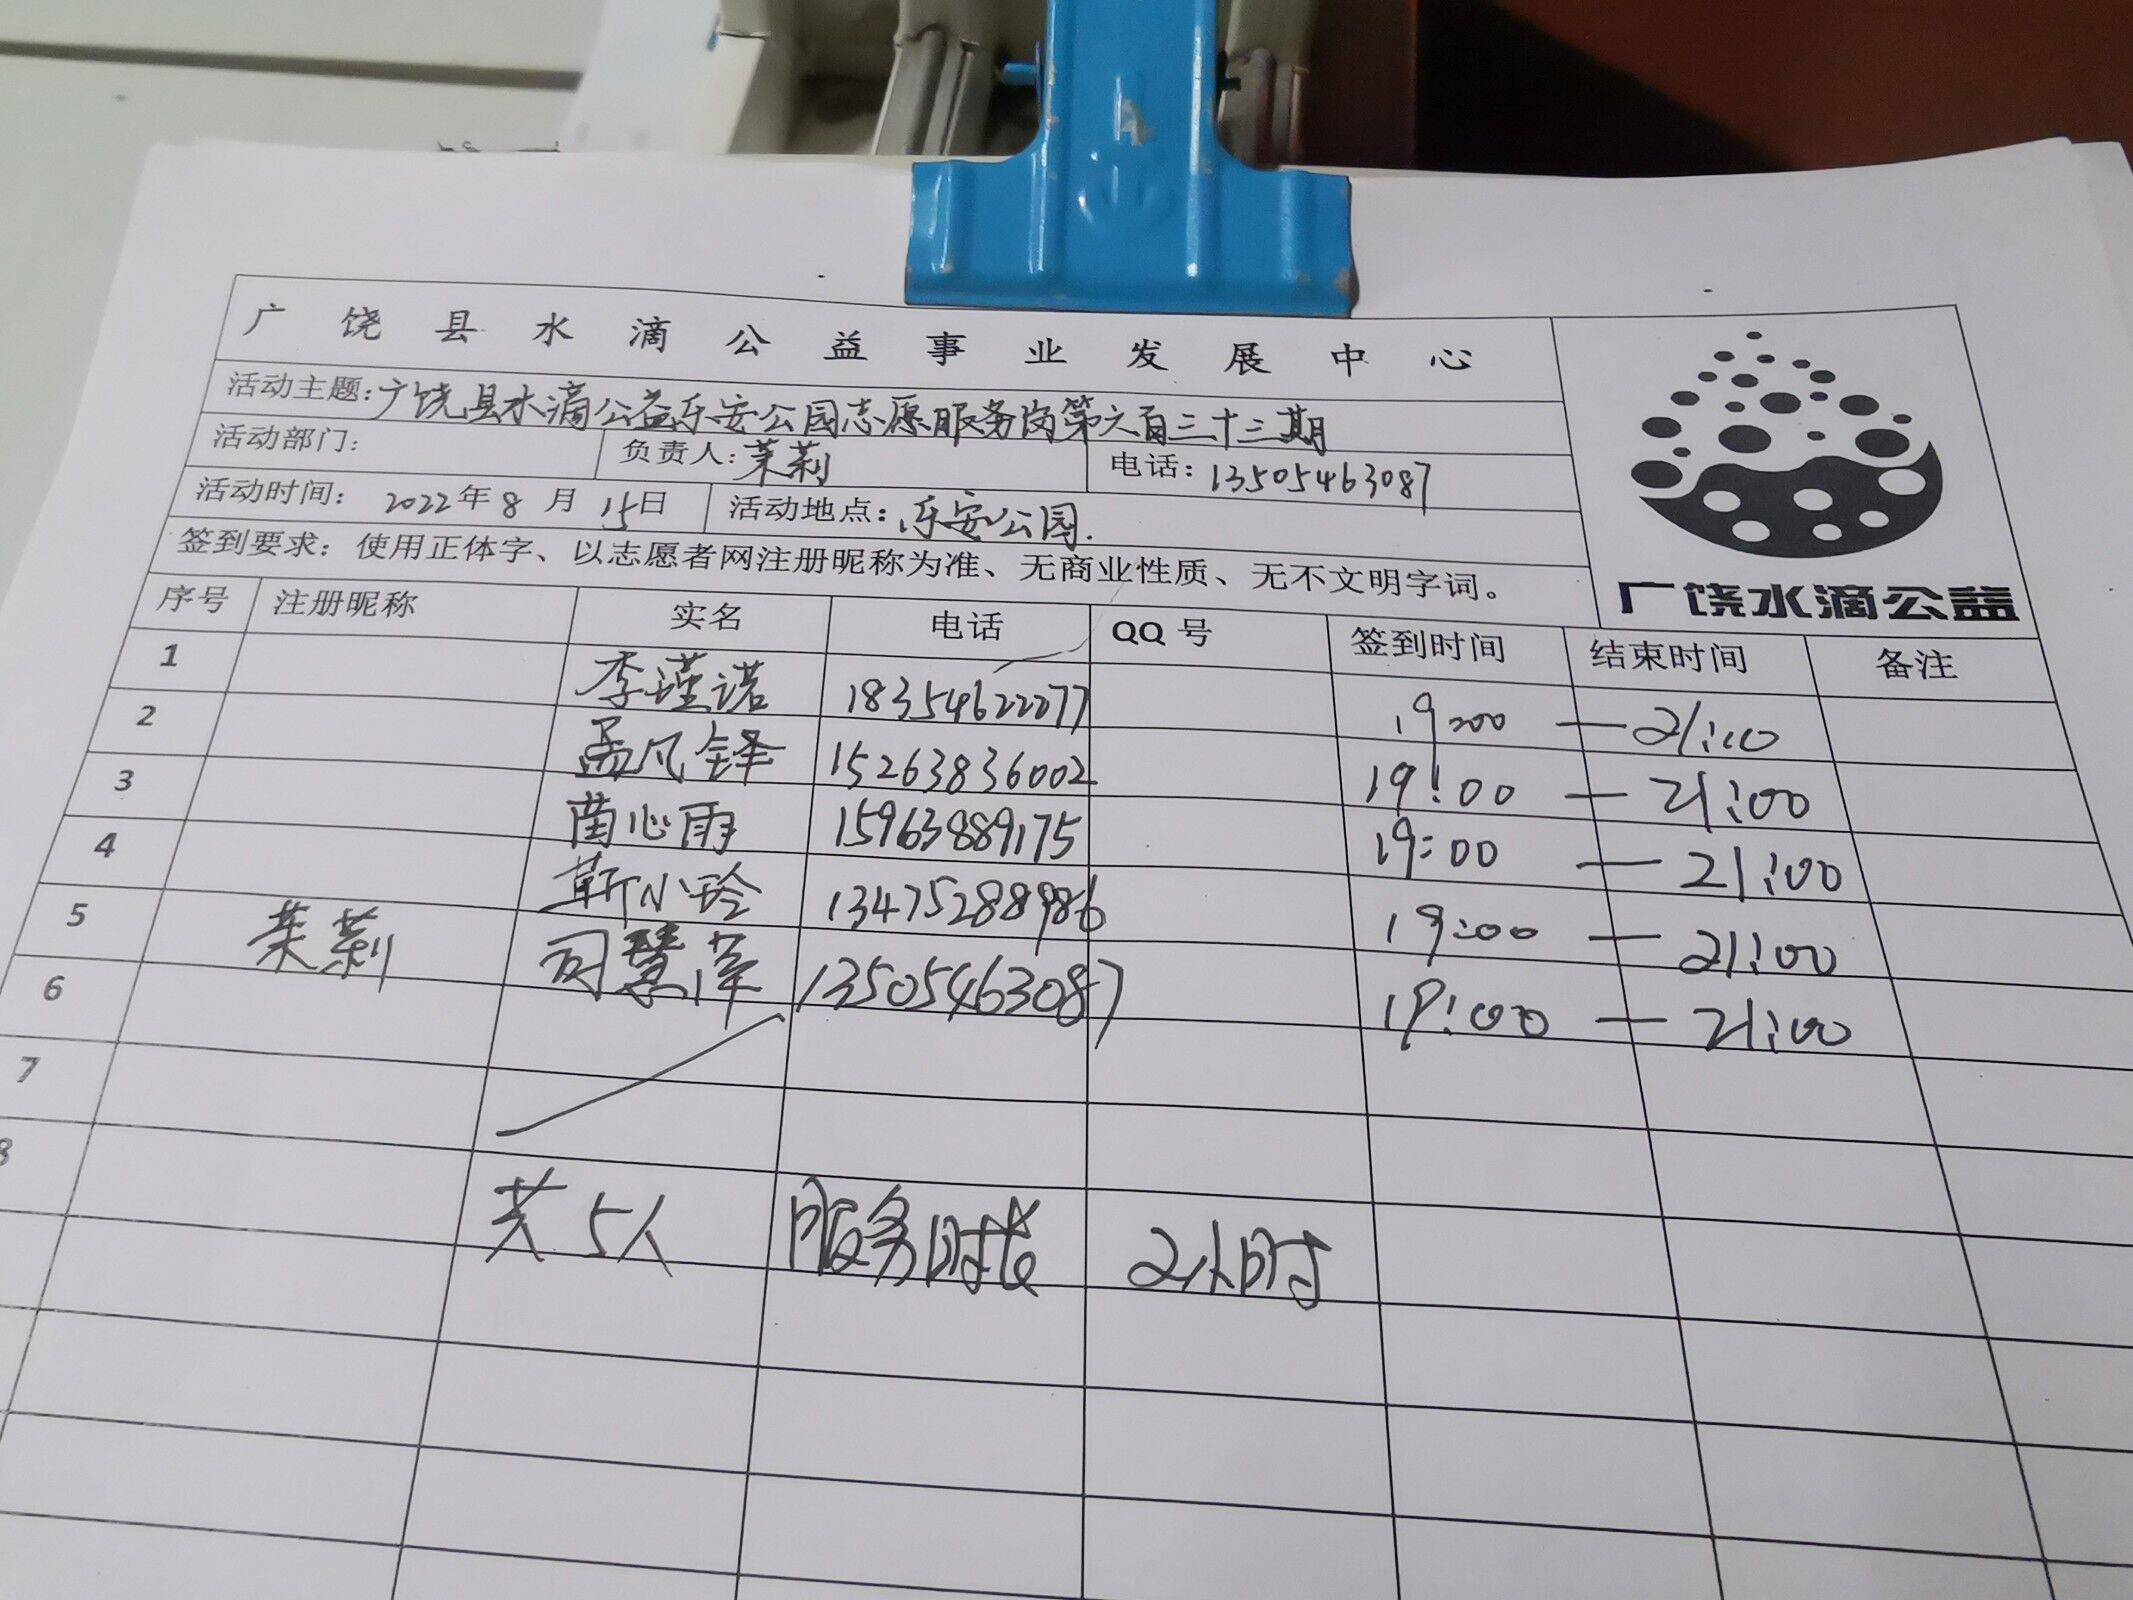 广饶县水滴公益事业发展中心
活动主题:广饶县水滴公益乐安公园志愿服务岗第六百三十三期
活动部门: 负责人:茉莉 电话:13505463087
活动时间: 2022年8月15日 活动地点:乐安公园.
签到要求:使用正体字、以志愿者网注册昵称为准、无商业性质、无不文明字词。
广饶水滴公益
序号 注册昵称 实名 电话 QQ号 签到时间 结束时间 备注
1 李瑾诺 18354622277 19:00 — 21:00
2 孟凡铎 15263836002 19:00 — 21:00
3 蔺心雨 15963889175 19:00 — 21:00
4 靳小玲 13475288986 19:00 — 21:00
5 茉莉 司慧萍 13505463087 19:00 — 21:00
6
7
8 共5人 服务时长 2小时